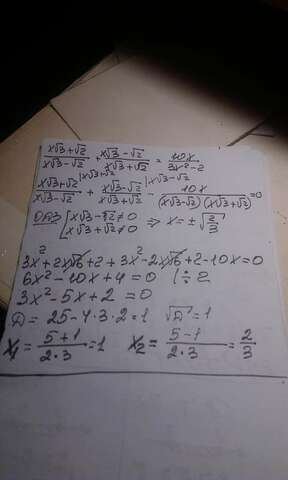 x√3+√2/x√3-√2 + x√3-√2/x√3+√2 = 10x/3x²-2
x√3+√2 |x√3+√2/x√3-√2 + x√3-√2 |x√3-√2/x√3+√2 - 10x/(x√3-√2)(x√3+√2) =0
ОДЗ [x√3-√2≠0 x√3+√2≠0 ⇒ x=±√2/3
3x²+2x√6+2+3x²-2x√6+2-10x=0
6x²-10x+4=0 |÷2
3x²-5x+2=0
D=25-4·3·2=1 √D=1
x₁=5+1/2·3=1 x₂=5-1/2·3=2/3